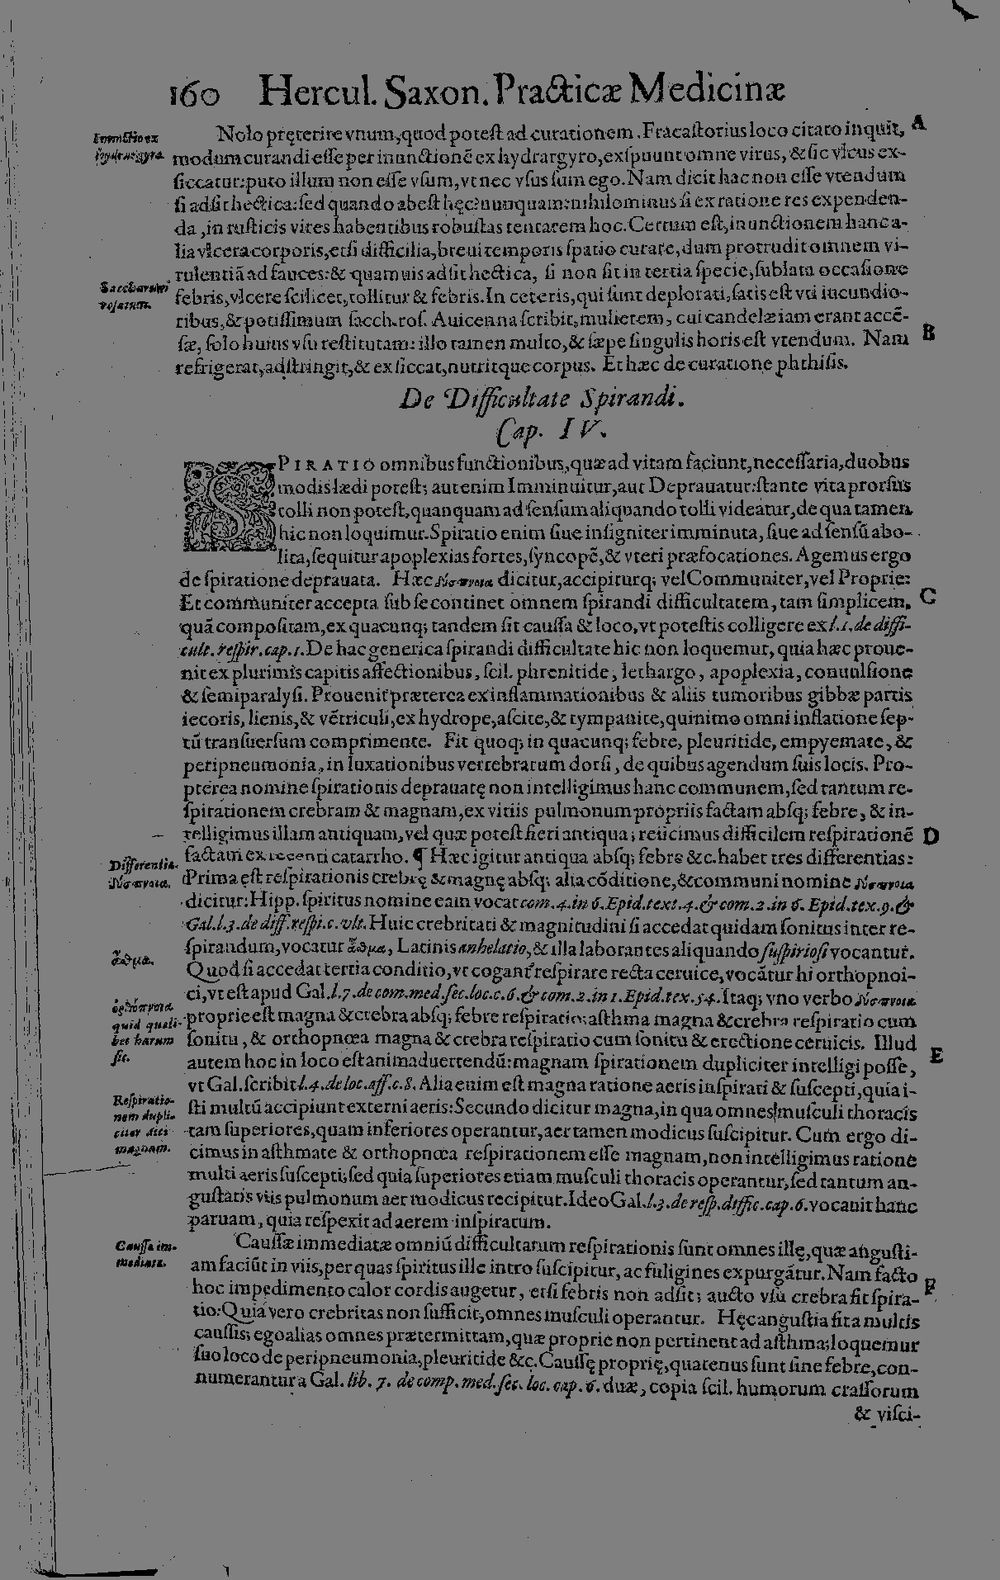 160 Hercul. Saxon. Practicæ Medicinæ
Nolo pręterire vnum, quod potest ad curationem. Fracastorius loco citato inquit, A
modum curandi esse per inunctionē ex hydrargyro, exspuunt omne virus, & sic vlcus ex-
siccatur: puto illum non esse vsum, vt nec vsus sum ego. Nam dicit hac non esse vtendum
si adsit hectica: sed quando abest hęc: nunquam: nihilominus si ex ratione res expenden-
da, in rusticis vires habentibus robustas tentarem hoc. Certum est, inunctionem hanc a-
lia vlcera corporis, etsi difficilia, breui temporis spatio curare, dum protrudit omnem vi-
rulentiā ad fauces: & quamuis adsit hectica, si non sit in tertia specie, sublata occasione
Saccharum
rosatum.
febris, vlcere scilicet, tollitur & febris. In ceteris, qui sunt deplorati, satis est vti iucundio-
ribus, & potissimum sacch. ros. Auicenna scribit, mulierem, cui candelæ iam erant accē-
sæ, solo huius vsu restitutam: illo tamen multo, & sæpe singulis horis est vtendum. Nam B
refrigerat, adstringit, & exsiccat, nutritque corpus. Et hæc de curatione phthisis.
De Difficultate Spirandi.
Cap. IV.
SPIRATIO omnibus functionibus, quæ ad vitam faciunt, necessaria, duobus
modis lædi potest; aut enim Imminuitur, aut Deprauatur: stante vita prorsus
tolli non potest, quanquam ad sensum aliquando tolli videatur, de qua tamen
hic non loquimur. Spiratio enim siue insigniter imminuta, siue ad sensū abo-
lita, sequitur apoplexias fortes, syncopē, & vteri præfocationes. Agemus ergo
de spiratione deprauata. Hæc δύσπνοια dicitur, accipiturq; vel Communiter, vel Proprie:
Et communiter accepta sub se continet omnem spirandi difficultatem, tam simplicem, C
quā compositam, ex quacunq; tandem sit caussa & loco, vt potestis colligere ex l. 1. de diffi-
cult. respir. cap. 1. De hac generica spirandi difficultate hic non loquemur, quia hæc proue-
nit ex plurimis capitis affectionibus, scil. phrenitide, lethargo, apoplexia, conuulsione
& semiparalysi. Prouenit præterea ex inflammationibus & aliis tumoribus gibbæ partis
iecoris, lienis, & vētriculi, ex hydrope, ascite, & tympanite, quinimo omni inflatione sep-
tū transuersum comprimente. Fit quoq; in quacunq; febre, pleuritide, empyemate, &
peripneumonia, in luxationibus vertebrarum dorsi, de quibus agendum suis locis. Pro-
pterea nomine spirationis deprauatę non intelligimus hanc communem, sed tantum re-
spirationem crebram & magnam, ex vitiis pulmonum propriis factam absq; febre, & in-
telligimus illam antiquam, vel quæ potest fieri antiqua; reiicimus difficilem respirationē D
factam ex recenti catarrho. ¶ Hæc igitur antiqua absq; febre &c. habet tres differentias:
Differentiæ
δύσπνοια.
Prima est respirationis crebrę & magnę absq; alia cōditione, & communi nomine δύσπνοια
dicitur: Hipp. spiritus nomine eam vocat com. 4. in 6. Epid. text. 4. & com. 2. in 6. Epid. tex. 9. &
Gal. l. 3. de diff. respi. c. vlt. Huic crebritati & magnitudini si accedat quidam sonitus inter re-
ἆσθμα.
spirandum, vocatur ἆσθμα, Latinis anhelatio, & illa laborantes aliquando suspiriosi vocantur.
Quod si accedat tertia conditio, vt cogant respirare recta ceruice, vocātur hi orthopnoi-
ci, vt est apud Gal. l. 7. de com. med. sec. loc. c. 6. & com. 2. in 1. Epid. tex. 54. Itaq; vno verbo δύσπνοια
ὀρθόπνοια
quid quali-
bet harum
sit.
proprie est magna & crebra absq; febre respiratio: asthma magna & crebra respiratio cum
sonitu, & orthopnœa magna & crebra respiratio cum sonitu & erectione ceruicis. Illud
autem hoc in loco est animaduertendū: magnam spirationem dupliciter intelligi posse, E
vt Gal. scribit l. 4. de loc. aff. c. 8. Alia enim est magna ratione aeris inspirati & suscepti, quia i-
Respiratio-
nem dupli-
citer dici
magnam.
sti multū accipiunt externi aeris: Secundo dicitur magna, in qua omnes musculi thoracis
tam superiores, quam inferiores operantur, aer tamen modicus suscipitur. Cum ergo di-
cimus in asthmate & orthopnœa respirationem esse magnam, non intelligimus ratione
multi aeris suscepti; sed quia superiores etiam musculi thoracis operantur, sed tantum an-
gustatis viis pulmonum aer modicus recipitur. Ideo Gal. l. 3. de resp. diffic. cap. 6. vocauit hanc
paruam, quia respexit ad aerem inspiratum.
Caussa im-
mediata.
Caussæ immediatæ omniū difficultatum respirationis sunt omnes illę, quæ angusti-
am faciūt in viis, per quas spiritus ille intro suscipitur, ac fuligines expurgātur. Nam facto
hoc impedimento calor cordis augetur, etsi febris non adsit; aucto vsū crebra fit spira- F
tio: Quia vero crebritas non sufficit, omnes musculi operantur. Hęc angustia fit a multis
caussis; ego alias omnes prætermittam, quæ proprie non pertinent ad asthma; loquemur
suo loco de peripneumonia, pleuritide &c. Caussę proprię, quatenus sunt sine febre, con-
numerantur a Gal. lib. 7. de comp. med. sec. loc. cap. 6. duæ, copia scil. humorum crassorum
& visci-